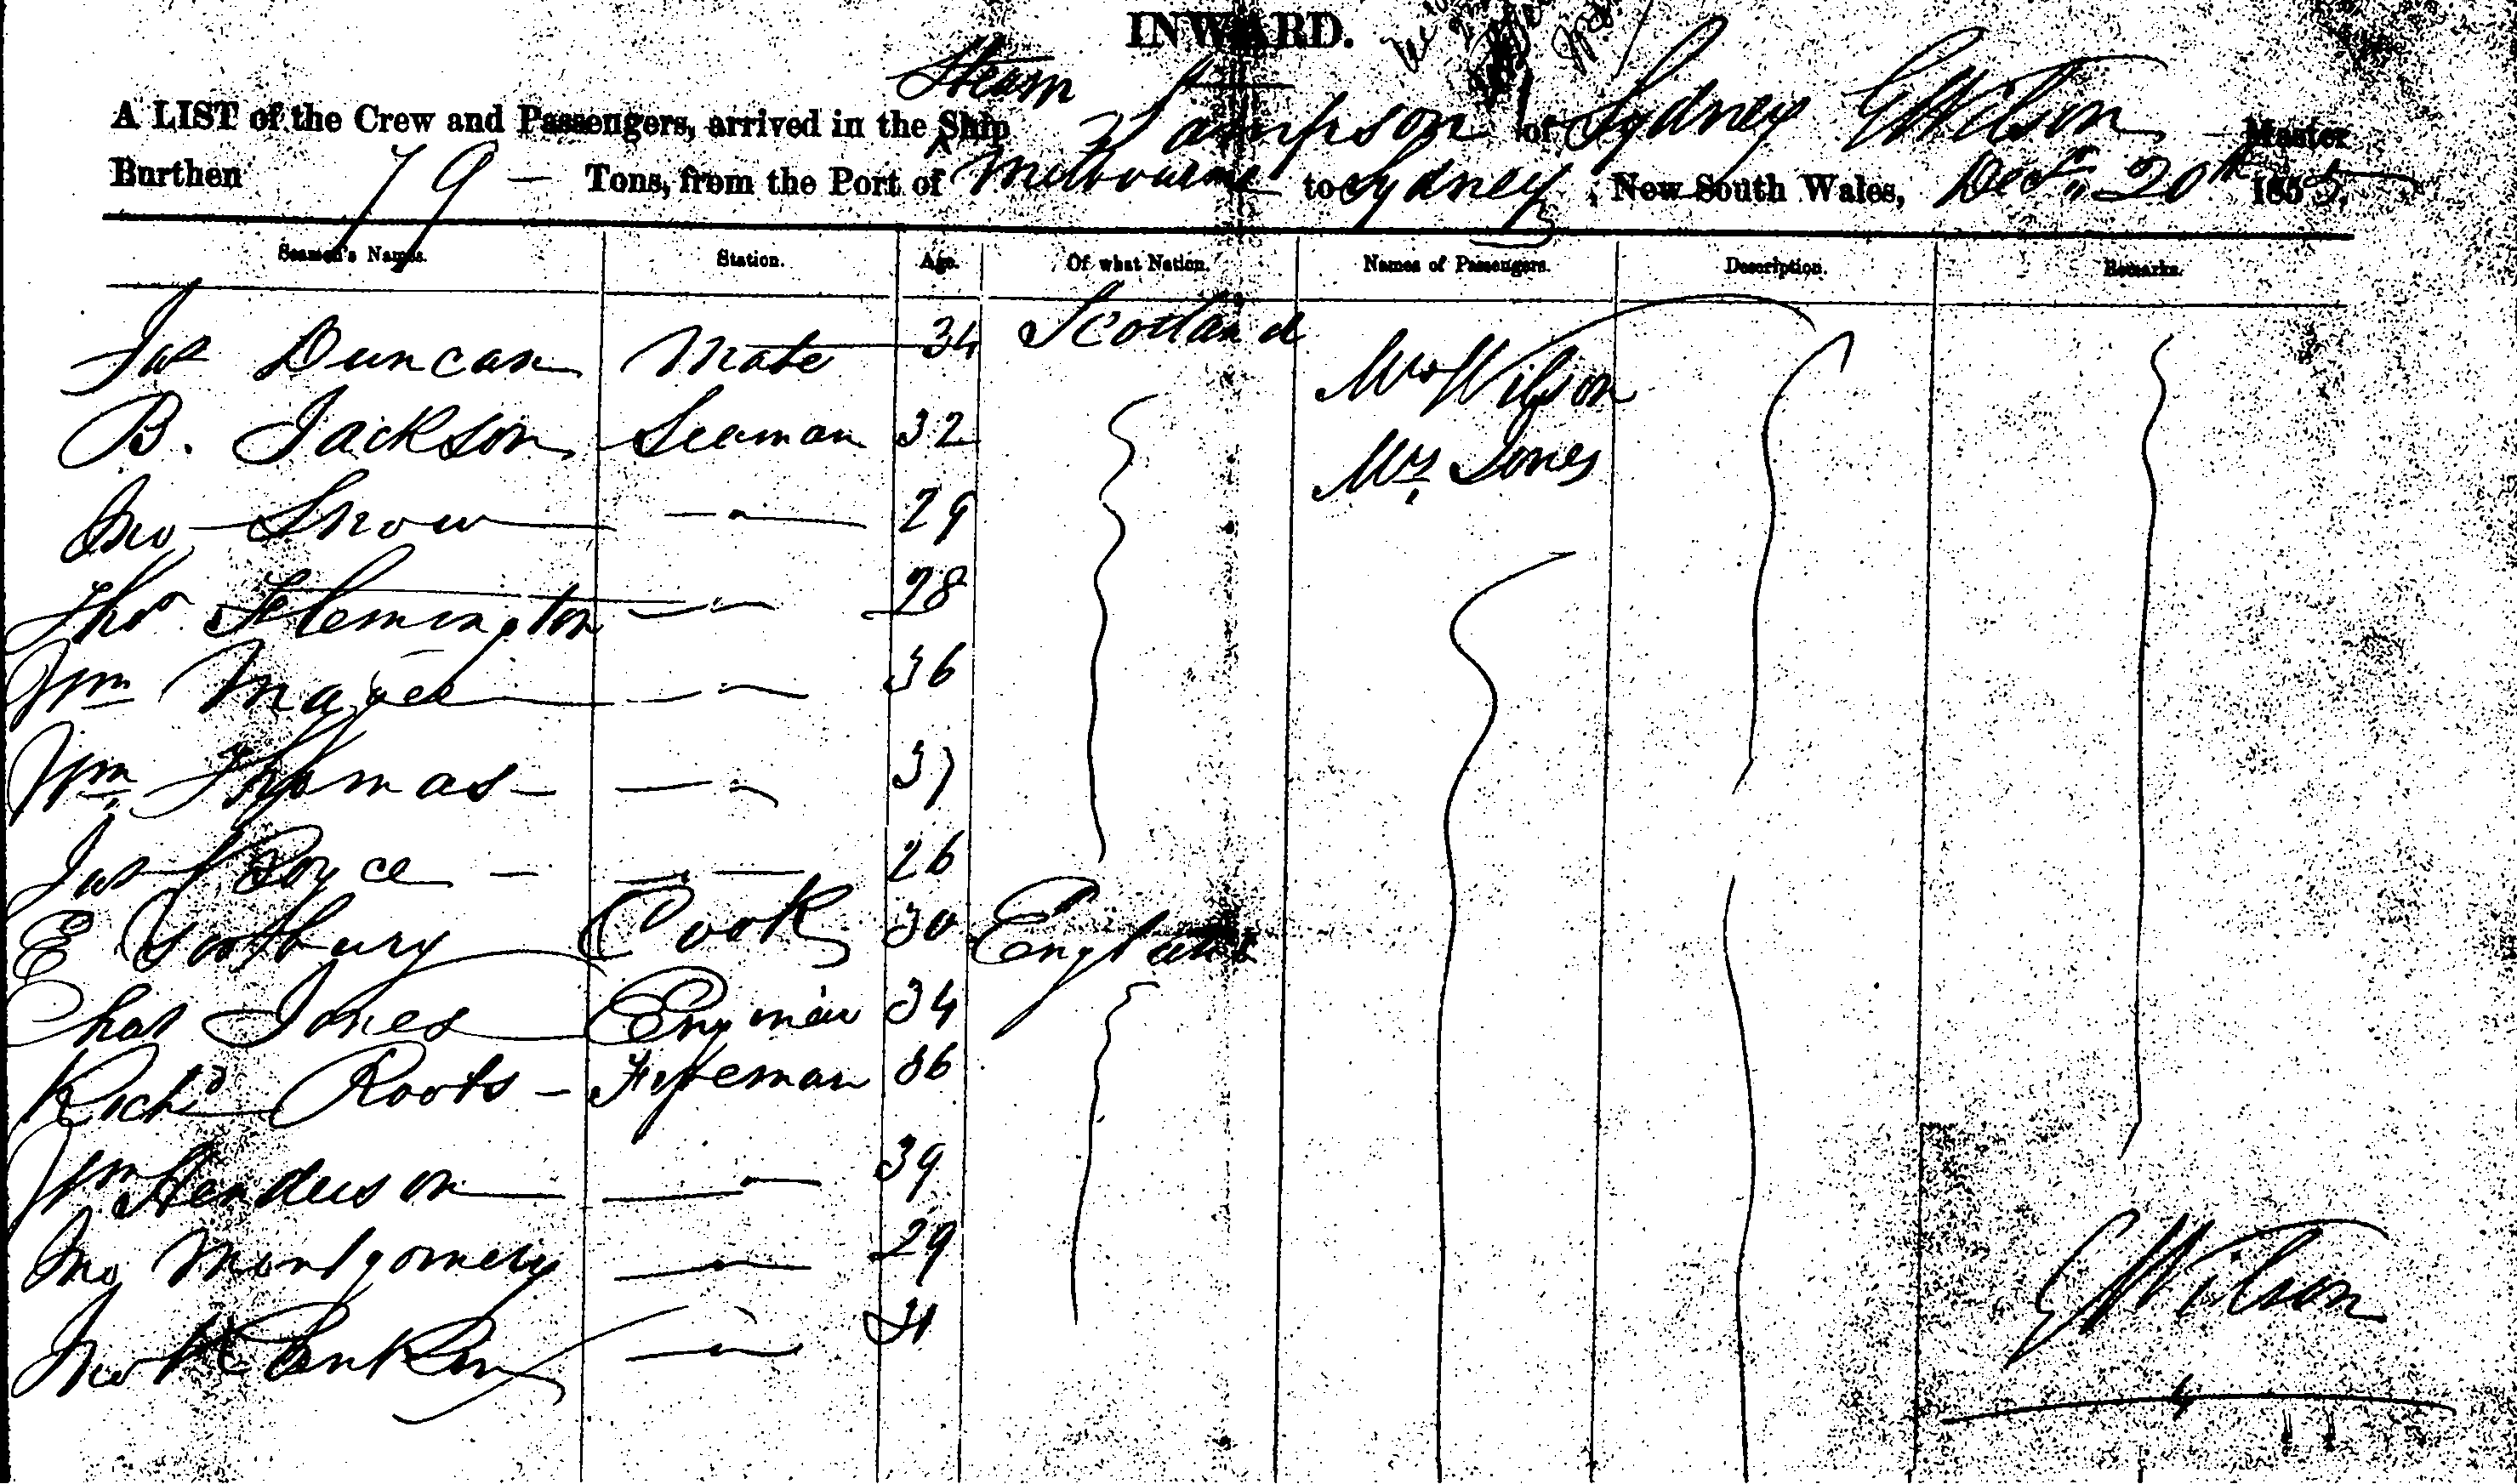 INWARD.
Steam
A LIST of the Crew and Passengers, arrived in the Ship Sampson of Sydney G Wilson Master
Burthen 79 — Tons, from the Port of Melbourne to Sydney, New South Wales, Decr. 20th 1855.
Seamen's Names. Station. Age. Of what Nation. Names of Passengers. Description. Remarks.
Jas Duncan Mate 34 Scotland Mrs Wilson
B. Jackson Seaman 32 Mrs Jones
Jno Snow — " — 29
Thos Flemington — " — 28
Wm — " — 36
Wm Thomas — — " — 37
Jas — — " — 26
E Cook 30 England
Chas Jones Engineer 34
Richd Roots — Fireman 36
Wm Henderson — " — 39
Jno Montgomery — " — 29
Jno — " — 31
G Wilson